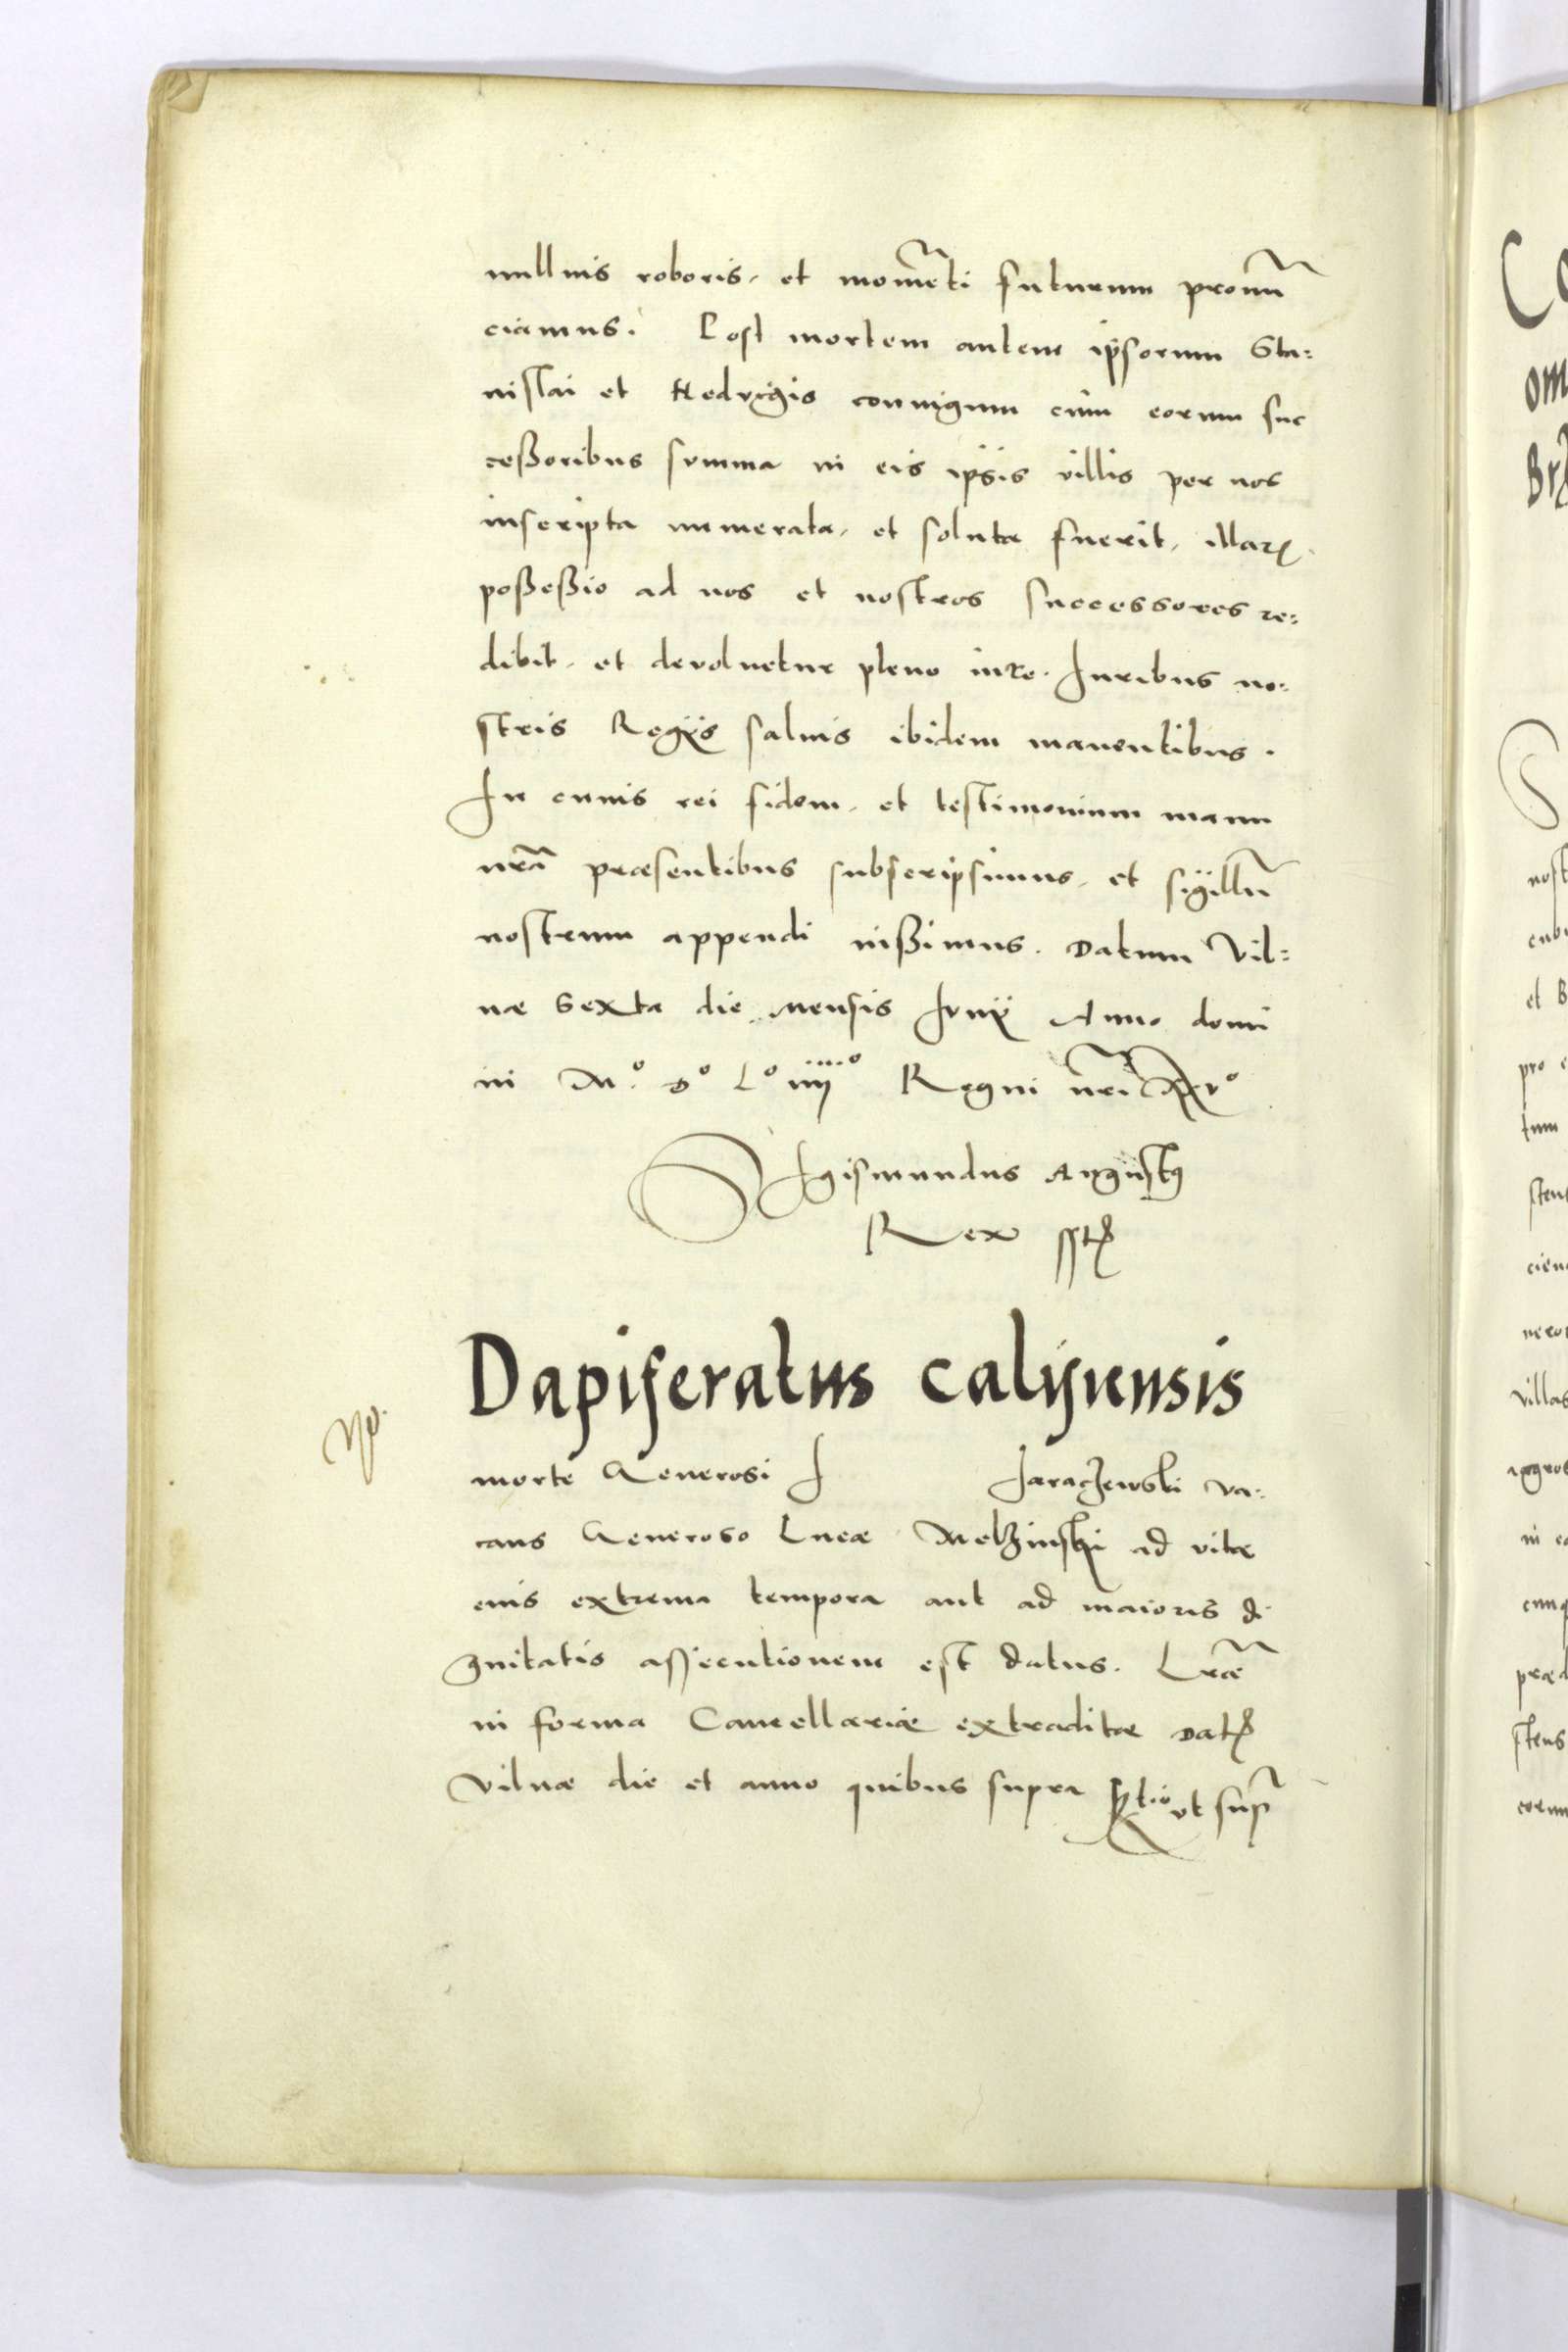 nullius roboris, et momẽti futurum pronũ
ciamus. Post mortem autem ipsorum Sta=
nislai et Hedvigis coniugum cum eorum suc
ceßoribus summa in eis ipsis villis per nos
inscripta numerata, et soluta fuerit, illarꝫ
poßeßio ad nos et nostros successores re=
dibit, et devoluetur pleno iure. Iuribus no=
stris Regijs saluis ibidem manentibus.
In cuius rei fidem, et testimonium manu
nrã præsentibus subscripsimus, et sigillũ
nostrum appendi iußimus. Datum Vil=
næ Sexta die mensis Iunij Anno domi
ni Mº Dº Lº iiijº Regni nrĩ xxvº
Sigismundus Augustꝰ
Rex sstꝫ
Dapiferatus calijsiensis
morte Generosi I Iaraczewski va=
cans Generoso Lucæ Melzinski ad vitæ
eius extrema tempora aut ad maioris di
gnitatis assecutionem est datus. Lræ̃
in forma Cancellariæ extraditæ Datꝫ
Vilnæ die et anno quibus supra Rltio vt supã